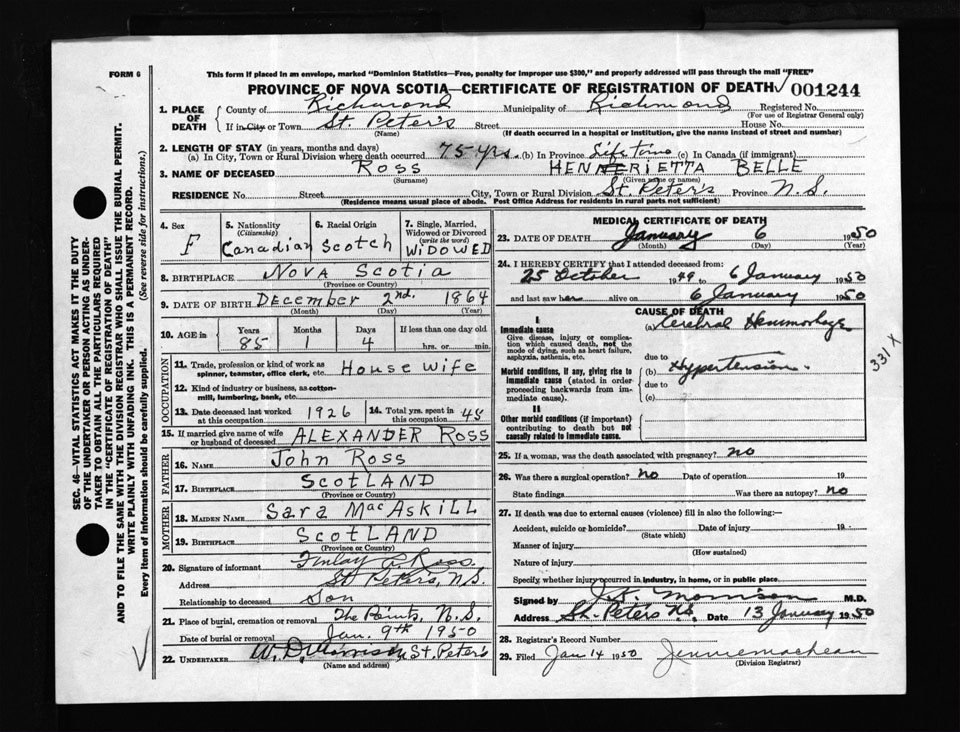 FORM 6
This form if placed in an envelope, marked "Dominion Statistics—Free, penalty for improper use $300," and properly addressed will pass through the mail "FREE"
PROVINCE OF NOVA SCOTIA—CERTIFICATE OF REGISTRATION OF DEATH 001244
1. PLACE OF DEATH County of Richmond Municipality of Richmond Registered No.
(For use of Registrar General only)
If in City or Town St. Peter's Street House No.
(Name) (If death occurred in a hospital or institution, give the name instead of street and number)
2. LENGTH OF STAY (in years, months and days)
(a) In City, Town or Rural Division where death occurred 75 yrs. (b) In Province Life time (c) In Canada (if immigrant)
3. NAME OF DECEASED ROSS HENRIETTA BELLE
(Surname) (Given name or names)
RESIDENCE No. Street City, Town or Rural Division St. Peter's Province N.S.
(Residence means usual place of abode. Post Office Address for residents in rural parts not sufficient)
4. Sex F
5. Nationality (Citizenship) Canadian
6. Racial Origin Scotch
7. Single, Married, Widowed or Divorced (write the word) WIDOWED
8. BIRTHPLACE NOVA SCOTIA
(Province or Country)
9. DATE OF BIRTH DECEMBER 2nd. 1864
(Month) (Day) (Year)
10. AGE in Years 85 Months 1 Days 4 If less than one day old hrs. or min.
OCCUPATION
11. Trade, profession or kind of work as spinner, teamster, office clerk, etc. House wife
12. Kind of industry or business, as cotton-mill, lumbering, bank, etc.
13. Date deceased last worked at this occupation 1926 14. Total yrs. spent in this occupation 45
15. If married give name of wife or husband of deceased ALEXANDER ROSS
FATHER
16. NAME John Ross
17. BIRTHPLACE SCOTLAND
(Province or Country)
MOTHER
18. MAIDEN NAME Sara MacAskill
19. BIRTHPLACE SCOTLAND
(Province or Country)
20. Signature of informant Finlay Ross
Address St Peters, N.S.
Relationship to deceased Son
21. Place of burial, cremation or removal The Points, N.S.
Date of burial or removal Jan. 9th 1950
22. UNDERTAKER W. D. Morrison, St. Peter's
(Name and address)
MEDICAL CERTIFICATE OF DEATH
23. DATE OF DEATH January 6 1950
(Month) (Day) (Year)
24. I HEREBY CERTIFY that I attended deceased from:
25 October 1949 to 6 January 1950
and last saw her alive on 6 January 1950
CAUSE OF DEATH
I
Immediate cause
Give disease, injury or complication which caused death, not the mode of dying, such as heart failure, asphyxia, asthenia, etc.
(a) Cerebral Hemmorhage
due to
Morbid conditions, if any, giving rise to immediate cause (stated in order proceeding backwards from immediate cause).
(b) Hypertension.
due to
(c)
II
Other morbid conditions (if important) contributing to death but not causally related to immediate cause.
331 X
25. If a woman, was the death associated with pregnancy? no
26. Was there a surgical operation? no Date of operation 19
State findings Was there an autopsy? no
27. If death was due to external causes (violence) fill in also the following:—
Accident, suicide or homicide? Date of injury 19
(State which)
Manner of injury
(How sustained)
Nature of injury
Specify, whether injury occurred in industry, in home, or in public place.
Signed by Morrison M.D.
Address St. Peters N.S. Date 13 January 1950
28. Registrar's Record Number
29. Filed Jan 14 1950 Jennie MacLean
(Division Registrar)
SEC. 46—VITAL STATISTICS ACT MAKES IT THE DUTY
OF THE UNDERTAKER OR PERSON ACTING AS UNDER-
TAKER TO OBTAIN ALL THE PARTICULARS REQUIRED
IN THE "CERTIFICATE OF REGISTRATION OF DEATH"
AND TO FILE THE SAME WITH THE DIVISION REGISTRAR WHO SHALL ISSUE THE BURIAL PERMIT.
WRITE PLAINLY WITH UNFADING INK. THIS IS A PERMANENT RECORD.
Every item of information should be carefully supplied. (See reverse side for instructions.)